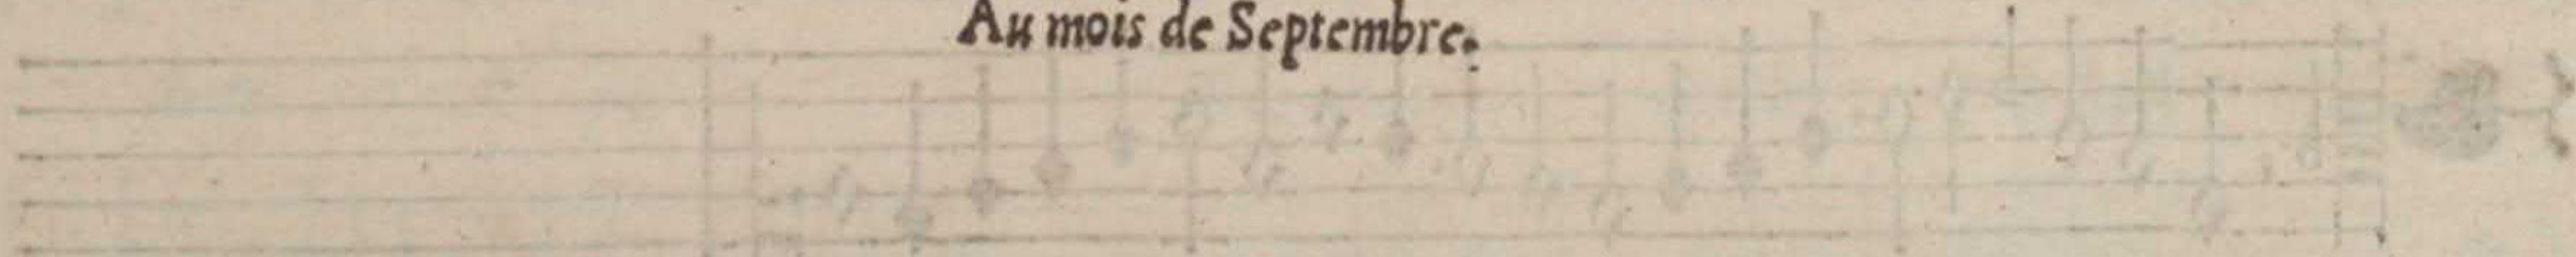 Au mois de Septembre.